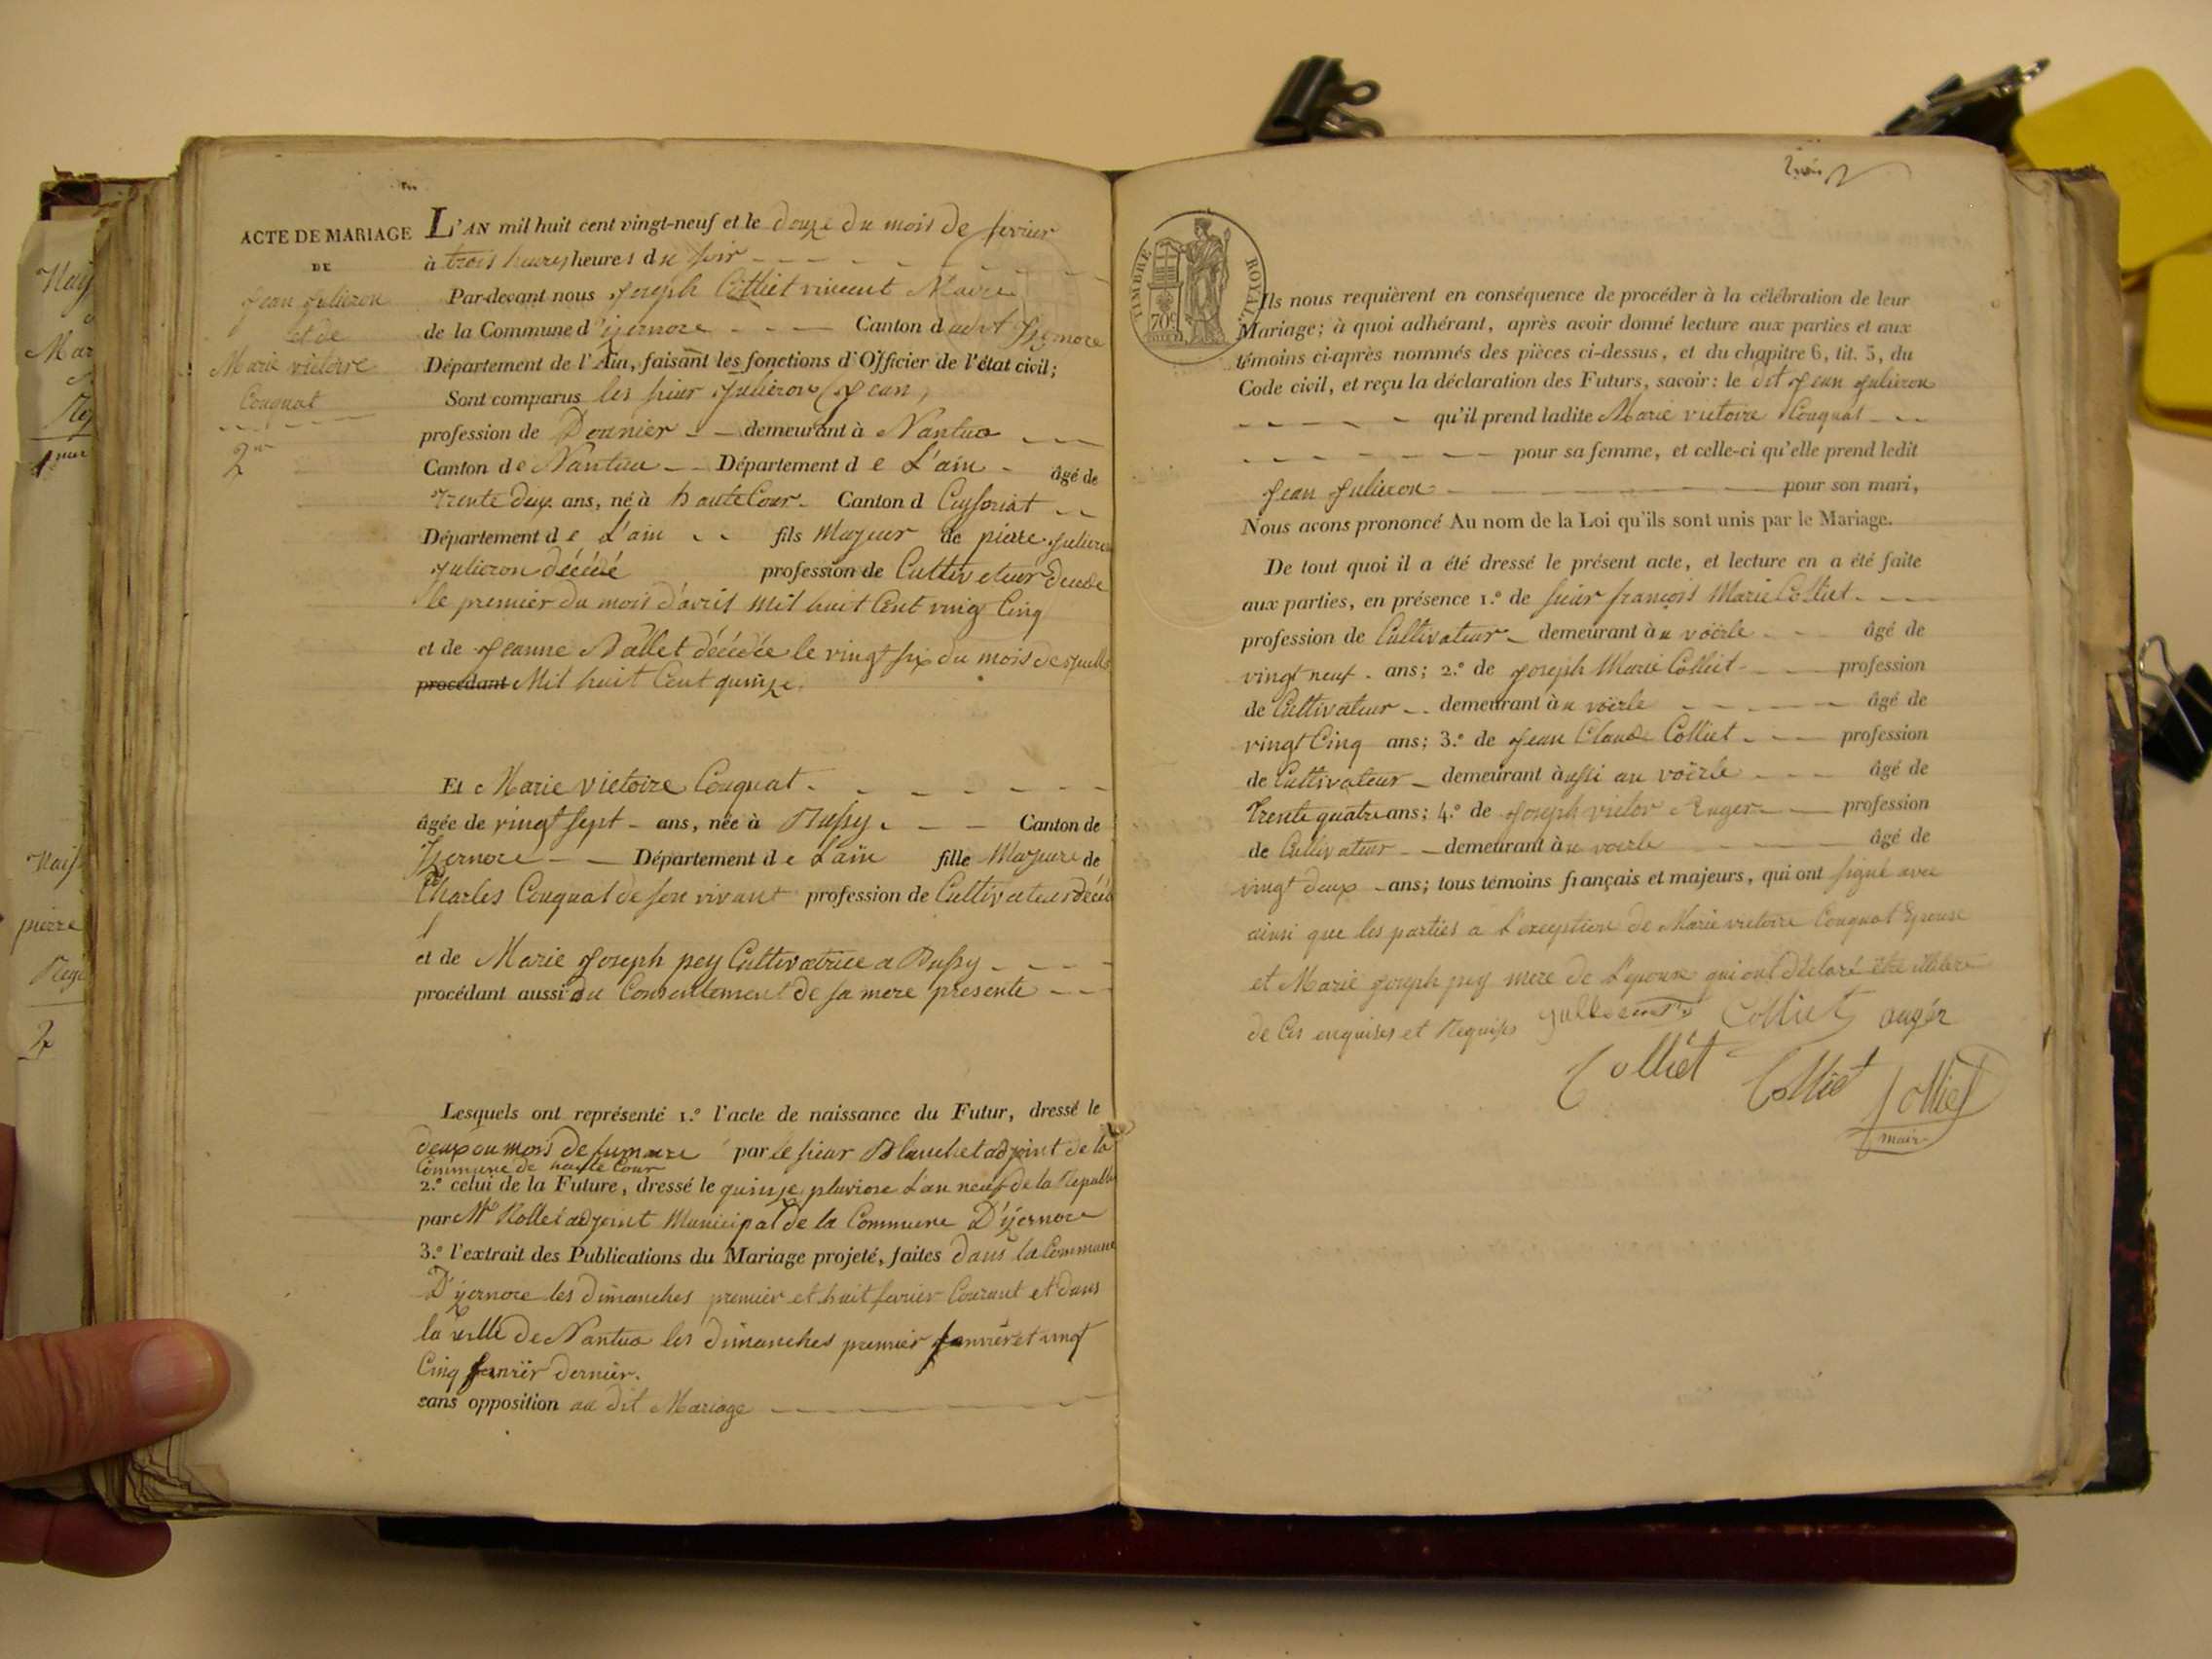 ACTE DE MARIAGE
DE
Jean Julieron
et de
Marie victoire
Couquat
2
L'AN mil huit cent vingt-neuf et le douze du mois de fevrier
à trois heures heures du soir
Par-devant nous Joseph Colliet vincent Maire
de la Commune d'izernore Canton dudit Izernore
Département de l'Ain, faisant les fonctions d'Officier de l'état civil;
Sont comparus les sieur Julieron (Jean)
profession de demeurant à Nantua
Canton de Nantua Département de L'ain âgé de
Trente deux ans, né à hautecour Canton d
Département de L'ain fils Majeur de pierre Julieron
Julieron décédé profession de Cultivateur décédé
le premier du mois d'avril mil huit Cent vingt Cinq
et de Jeanne décédée le vingt six du mois de
procédant Mil huit Cent quinze
Et Marie victoire Couquat
âgée de vingt sept ans, née à Bussy Canton de
Izernore Département de L'ain fille Majeure de
Charles Couquat de son vivant profession de Cultivateur décédé
et de Marie Joseph pey Cultivatrice a Bussy
procédant aussi du Consentement de sa mere presente
Lesquels ont représenté 1.º l'acte de naissance du Futur, dressé le
deux du mois de par le sieur Blanchet adjoint de la
Commune de haute Cour
2.º celui de la Future, dressé le quinze pluviose L'an neuf de la Republ
par Mr Rollet adjoint Municipal de la Commune D'izernore
3.º l'extrait des Publications du Mariage projeté, faites dans la Commune
D'izernore les dimanches premier et huit fevrier Courant et dans
la ville de Nantua les dimanches premier et vingt
Cinq dernier.
sans opposition au dit Mariage
TIMBRE ROYAL
70c
Ils nous requièrent en conséquence de procéder à la célébration de leur
Mariage; à quoi adhérant, après avoir donné lecture aux parties et aux
témoins ci-après nommés des pièces ci-dessus, et du chapitre 6, tit. 5, du
Code civil, et reçu la déclaration des Futurs, savoir: le dit Jean Julieron
qu'il prend ladite Marie victoire Couquat
pour sa femme, et celle-ci qu'elle prend ledit
Jean Julieron pour son mari,
Nous avons prononcé Au nom de la Loi qu'ils sont unis par le Mariage.
De tout quoi il a été dressé le présent acte, et lecture en a été faite
aux parties, en présence 1.º de sieur françois Marie Colliet
profession de Cultivateur demeurant au voërle âgé de
vingt neuf ans; 2.º de Joseph Marie Colliet profession
de Cultivateur demeurant au voërle âgé de
vingt Cinq ans; 3.º de Jean Claude Colliet profession
de Cultivateur demeurant aussi au voërle âgé de
Trente quatre ans; 4.º de Joseph victor Auger profession
de Cultivateur demeurant au voerle âgé de
vingt deux ans; tous témoins français et majeurs, qui ont signé avec
ainsi que les parties a L'exception de Marie victoire Couquat Epouse
et Marie Joseph pey mere de L'epouse qui ont déclaré être illitere
de Ces enquises et Requises Colliet augér
Colliet Colliet Colliet
mair